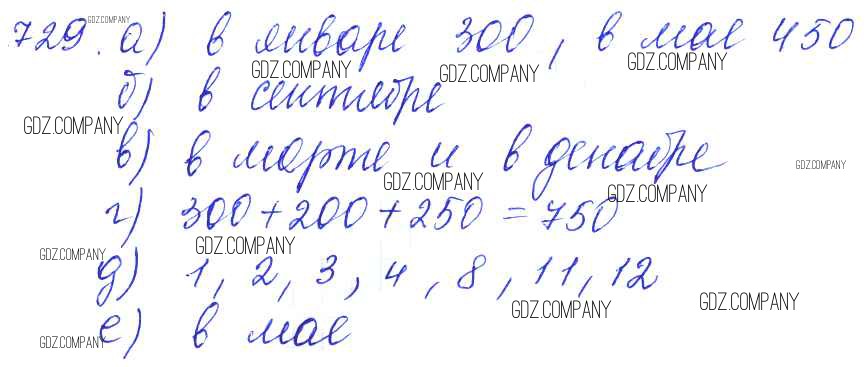 729. а) в январе 300, в мае 450
б) в сентябре
в) в марте и в декабре
г) 300+200+250=750
д) 1, 2, 3, 4, 8, 11, 12
е) в мае
GDZ.COMPANY
GDZ.COMPANY
GDZ.COMPANY
GDZ.COMPANY
GDZ.COMPANY
GDZ.COMPANY
GDZ.COMPANY
GDZ.COMPANY
GDZ.COMPANY
GDZ.COMPANY
GDZ.COMPANY
GDZ.COMPANY
GDZ.COMPANY